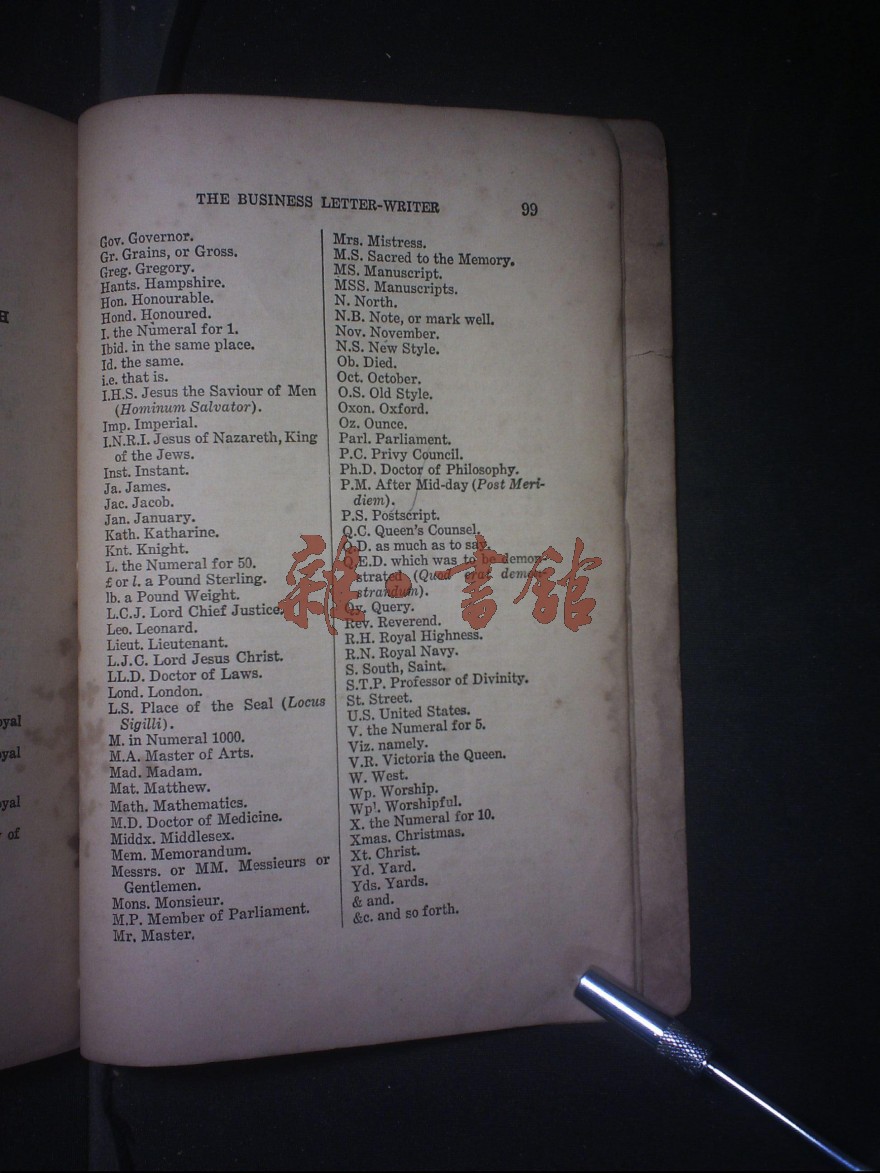 THE BUSINESS LETTER-WRITER 99
Gov. Governor.
Gr. Grains, or Gross.
Greg. Gregory.
Hants. Hampshire.
Hon. Honourable.
Hond. Honoured.
I. the Numeral for 1.
Ibid. in the same place.
Id. the same.
i.e. that is.
I.H.S. Jesus the Saviour of Men
(Hominum Salvator).
Imp. Imperial.
I.N.R.I. Jesus of Nazareth, King
of the Jews.
Inst. Instant.
Ja. James.
Jac. Jacob.
Jan. January.
Kath. Katharine.
Knt. Knight.
L. the Numeral for 50.
£ or l. a Pound Sterling.
lb. a Pound Weight.
L.C.J. Lord Chief Justice.
Leo. Leonard.
Lieut. Lieutenant.
L.J.C. Lord Jesus Christ.
LL.D. Doctor of Laws.
Lond. London.
L.S. Place of the Seal (Locus
Sigilli).
M. in Numeral 1000.
M.A. Master of Arts.
Mad. Madam.
Mat. Matthew.
Math. Mathematics.
M.D. Doctor of Medicine.
Middx. Middlesex.
Mem. Memorandum.
Messrs. or MM. Messieurs or
Gentlemen.
Mons. Monsieur.
M.P. Member of Parliament.
Mr. Master.
Mrs. Mistress.
M.S. Sacred to the Memory.
MS. Manuscript.
MSS. Manuscripts.
N. North.
N.B. Note, or mark well.
Nov. November.
N.S. New Style.
Ob. Died.
Oct. October.
O.S. Old Style.
Oxon. Oxford.
Oz. Ounce.
Parl. Parliament.
P.C. Privy Council.
Ph.D. Doctor of Philosophy.
P.M. After Mid-day (Post Meri-
diem).
P.S. Postscript.
Q.C. Queen's Counsel.
Q.D. as much as to say.
Q.E.D. which was to be demon-
strated (Quod erat demon-
strandum).
Qy. Query.
Rev. Reverend.
R.H. Royal Highness.
R.N. Royal Navy.
S. South, Saint.
S.T.P. Professor of Divinity.
St. Street.
U.S. United States.
V. the Numeral for 5.
Viz. namely.
V.R. Victoria the Queen.
W. West.
Wp. Worship.
Wpl. Worshipful.
X. the Numeral for 10.
Xmas. Christmas.
Xt. Christ.
Yd. Yard.
Yds. Yards.
& and.
&c. and so forth.
雜·書館